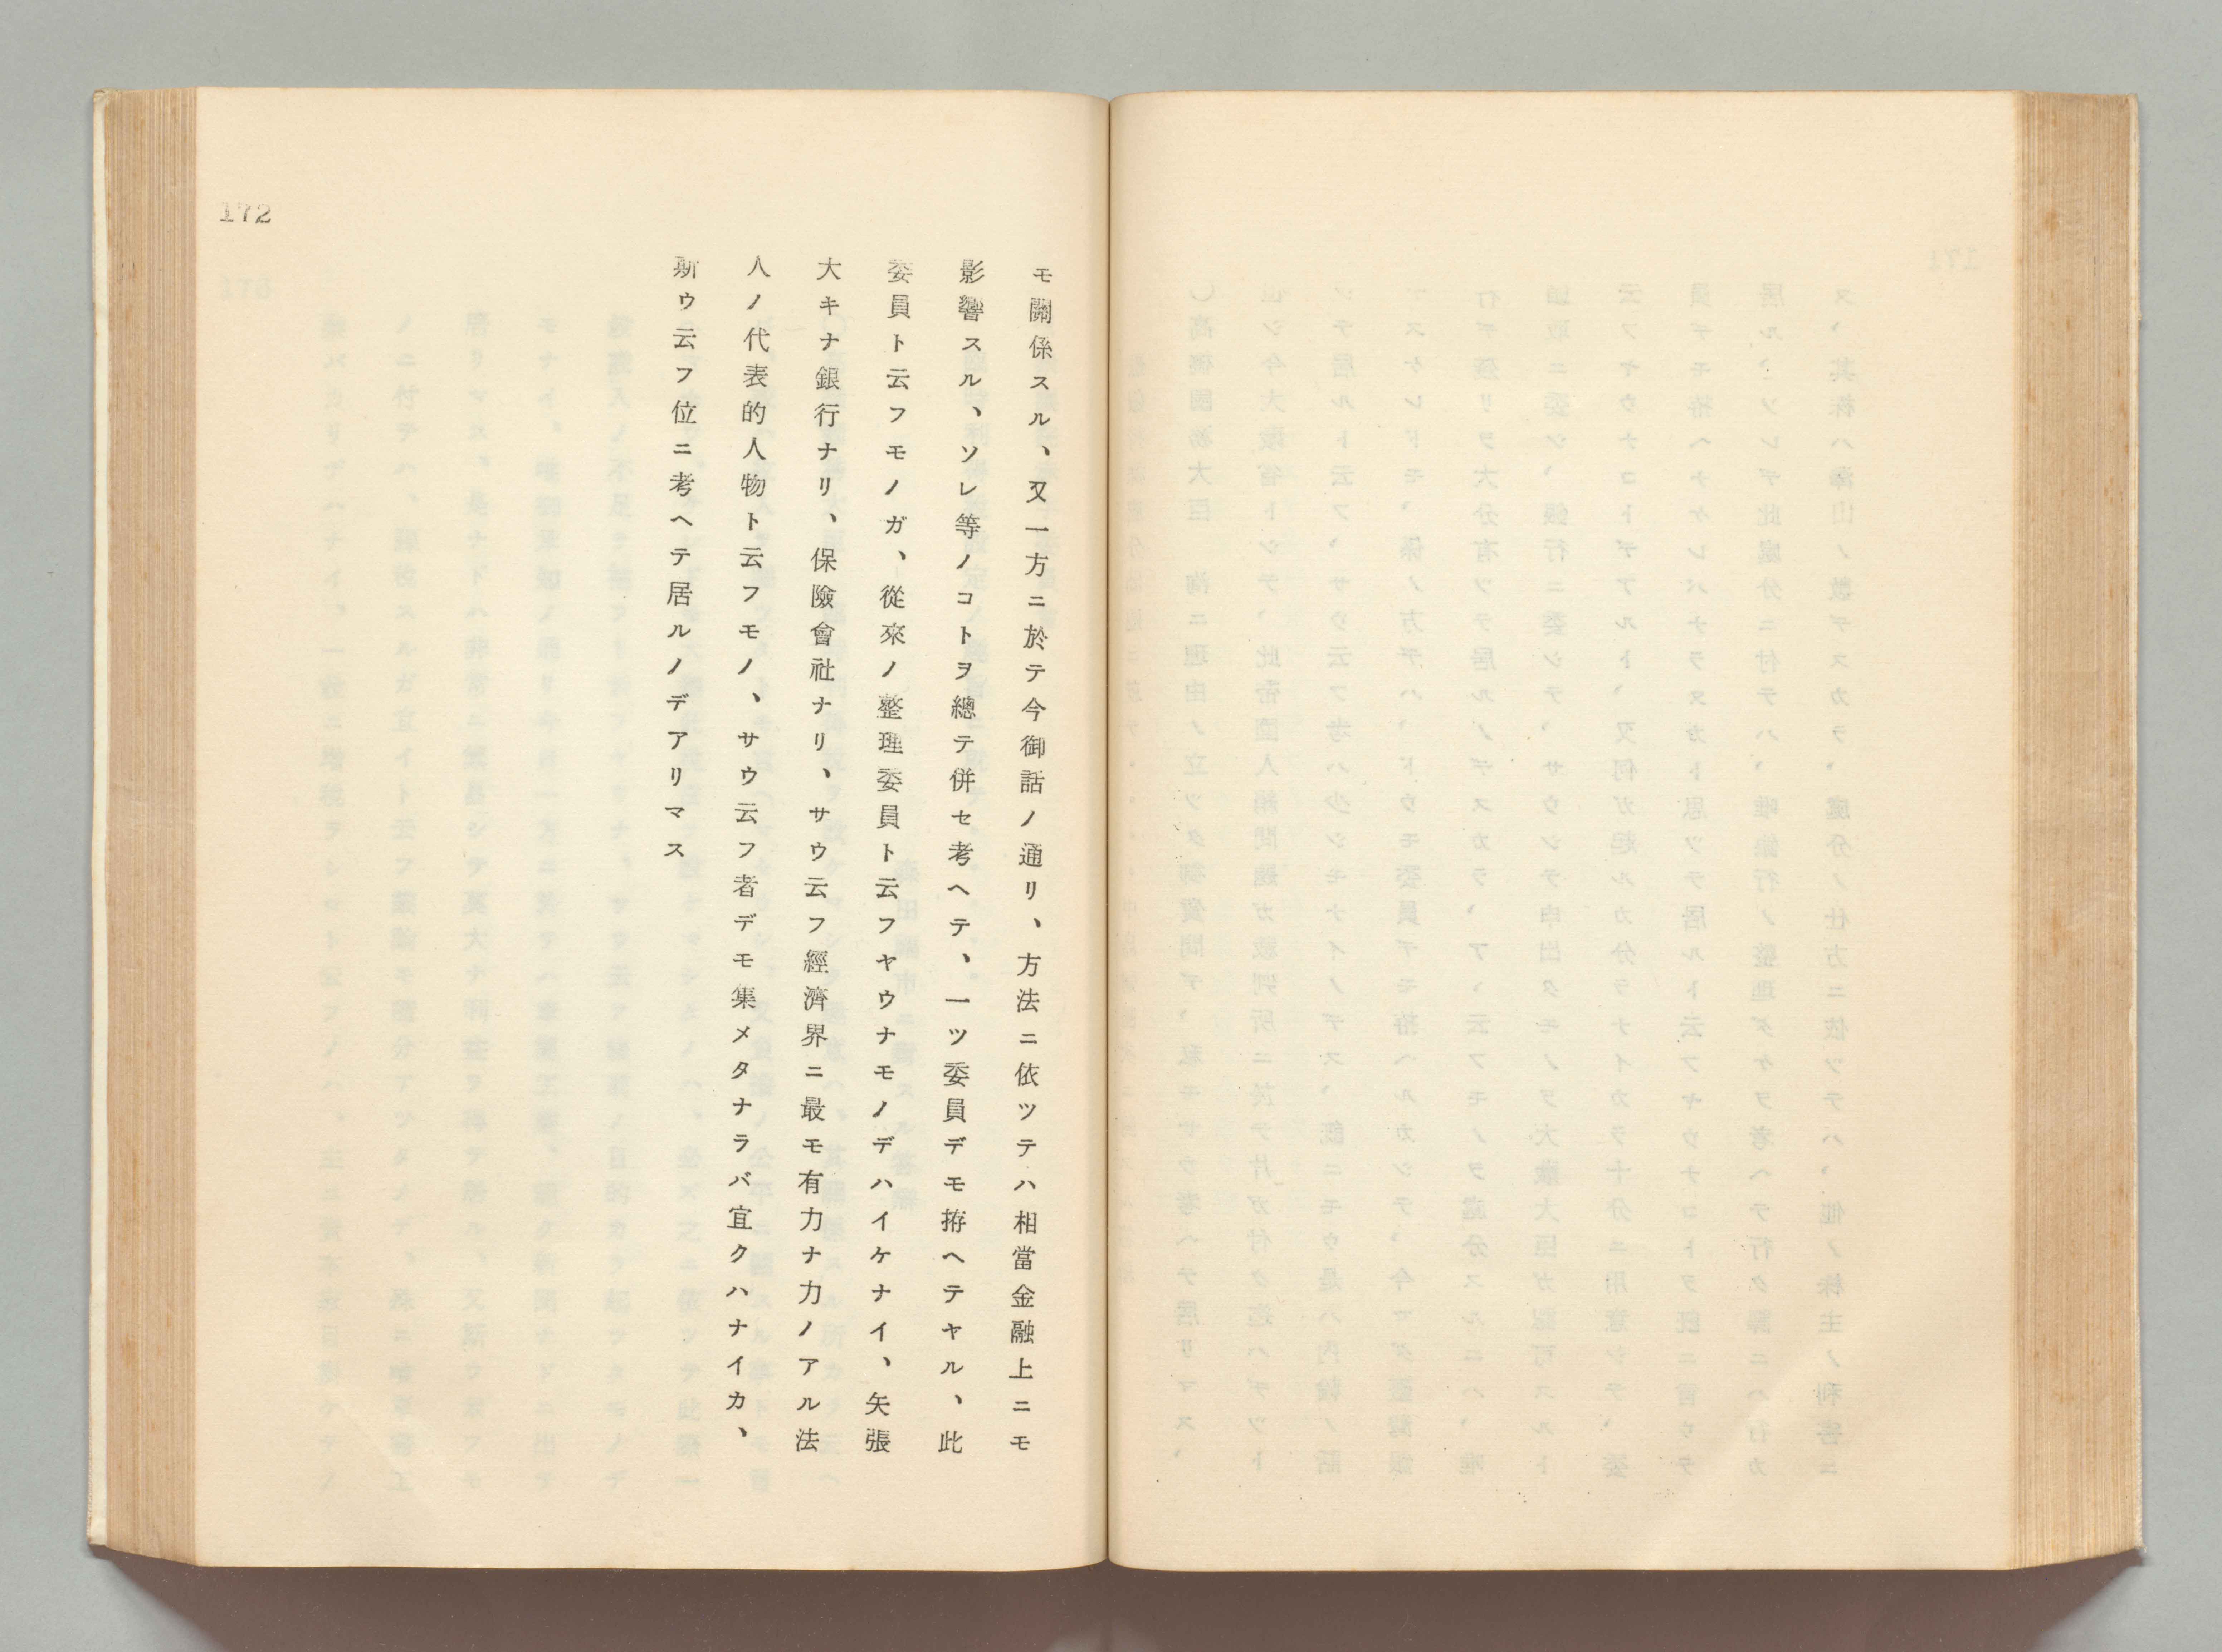 モ關係スル、又一方ニ於テ今御話ノ通リ、方法ニ依ツテハ相當金融上ニモ
影響スル、ソレ等ノコトヲ總テ併セ考ヘテ、一ツ委員デモ拵ヘテヤル、此
委員ト云フモノガ、從來ノ整理委員ト云フヤウナモノデハイケナイ、矢張
大キナ銀行ナリ、保險會社ナリ、サウ云フ經濟界ニ最モ有力ナ力ノアル法
人ノ代表的人物ト云フモノ、サウ云フ者デモ集メタナラバ宜クハナイカ、
斯ウ云フ位ニ考ヘテ居ルノデアリマス
172